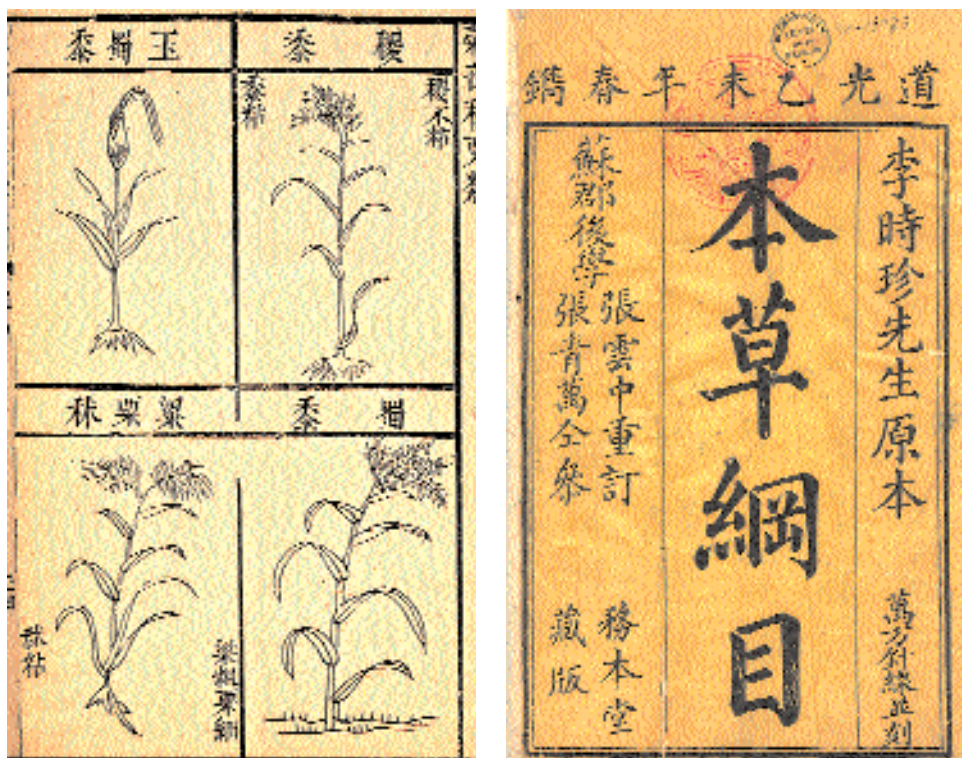 稷黍
稷不粘
黍粘
玉蜀黍
蜀黍
粱粟秫
粱粗粟細
秫粘
道光乙未年春鐫
李時珍先生原本
萬方針線並刻
本草綱目
蘇郡後學
張雲中重訂
張青萬仝參
務本堂
藏版